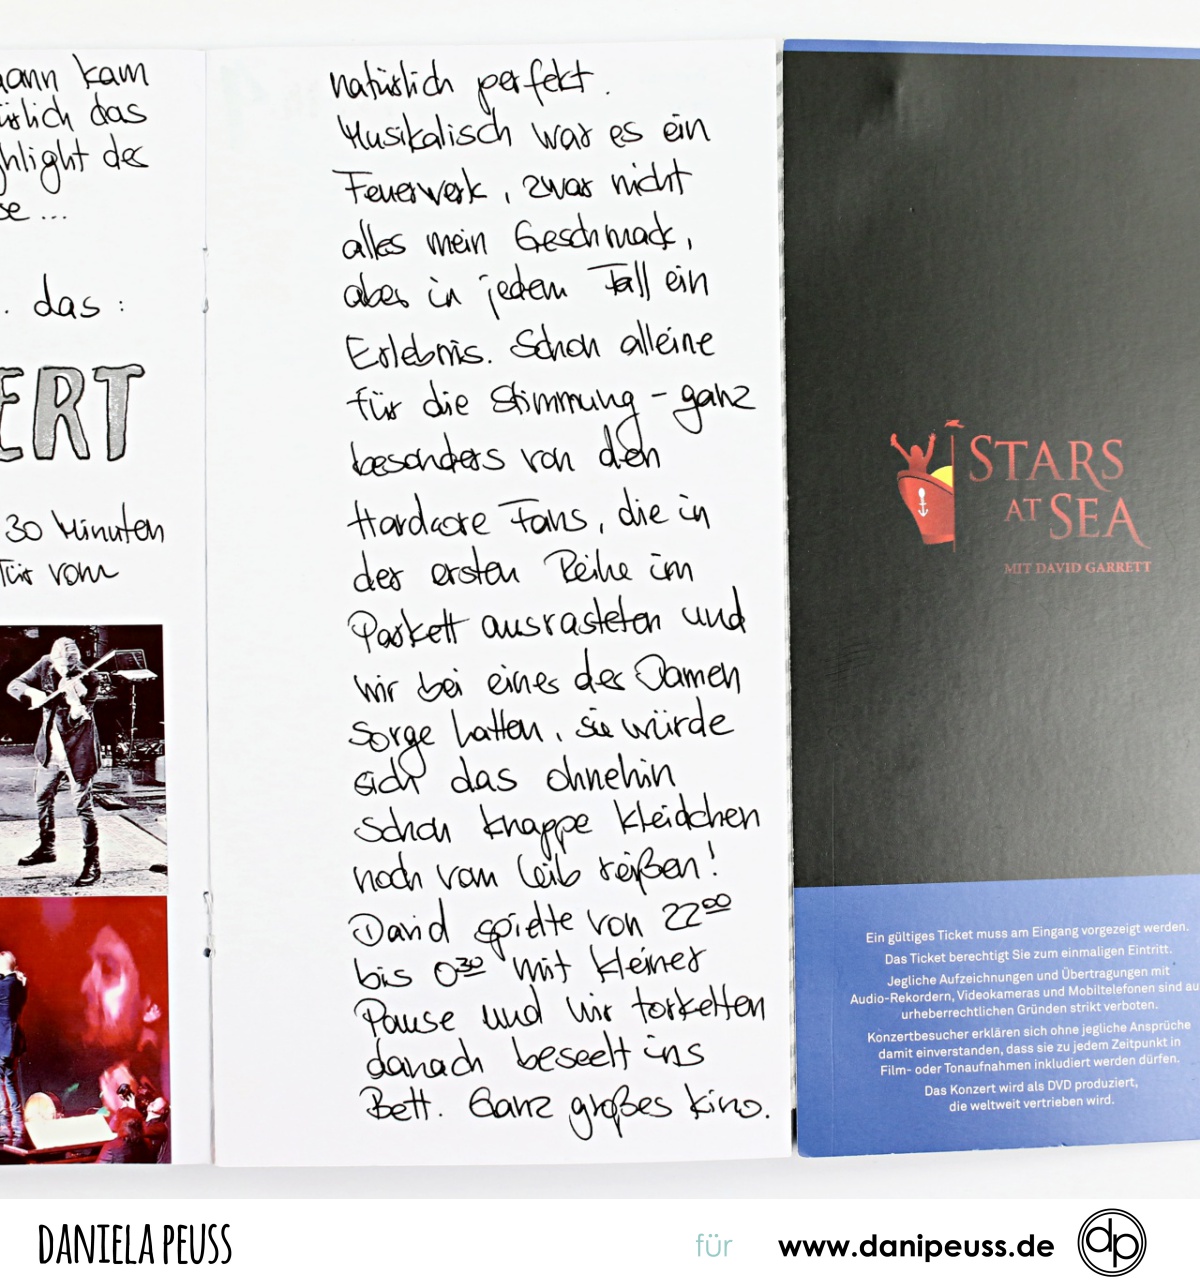 dann kam
natürlich das
Highlight der
Reise ...
... das :
KONZERT
30 Minuten
Tür vom
natürlich perfekt.
Musikalisch war es ein
Feuerwerk, zwar nicht
alles mein Geschmack,
aber in jedem Fall ein
Erlebnis. Schon alleine
für die Stimmung - ganz
besonders von den
Hardcore Fans, die in
der ersten Reihe im
Parkett ausrasteten und
wir bei einer der Damen
Sorge hatten, sie würde
sich das ohnehin
schon knappe Kleidchen
noch vom Leib reißen!
David spielte von 22⁰⁰
bis 0³⁰ mit kleiner
Pause und wir torkelten
danach beseelt ins
Bett. Ganz großes Kino.
STARS
AT SEA
MIT DAVID GARRETT
Ein gültiges Ticket muss am Eingang vorgezeigt werden.
Das Ticket berechtigt Sie zum einmaligen Eintritt.
Jegliche Aufzeichnungen und Übertragungen mit
Audio-Rekordern, Videokameras und Mobiltelefonen sind au
urheberrechtlichen Gründen strikt verboten.
Konzertbesucher erklären sich ohne jegliche Ansprüche
damit einverstanden, dass sie zu jedem Zeitpunkt in
Film- oder Tonaufnahmen inkludiert werden dürfen.
Das Konzert wird als DVD produziert,
die weltweit vertrieben wird.
DANIELA PEUSS
für www.danipeuss.de dp